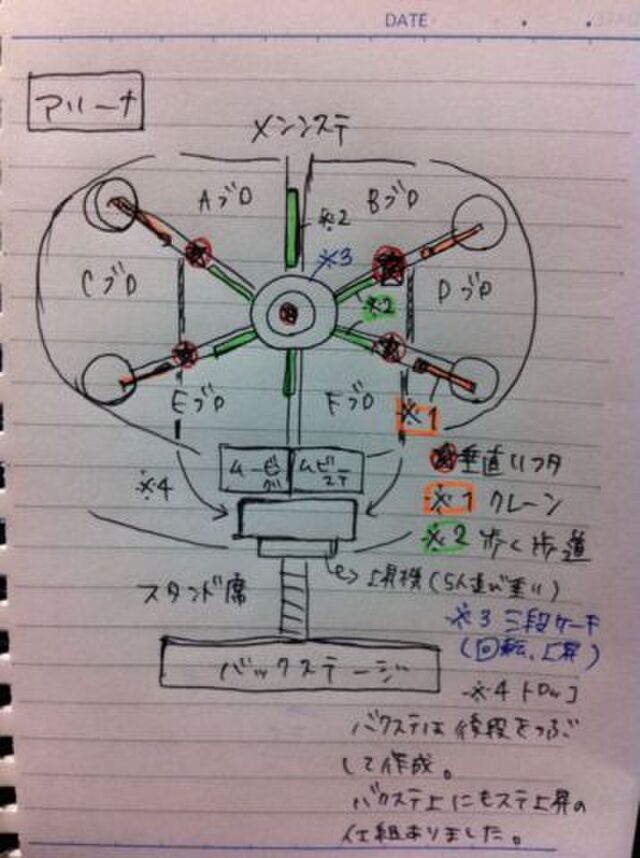 DATE
アリーナ
メンンステ
Aブロ
Bブロ
※2
※3
Cブロ
Dブロ
※2
Eブロ
Fブロ
※1
ムービ
ムビ
ステ
垂直リフタ
※4
※1 クレーン
※2 歩く歩道
上昇機(5人並び乗り)
スタンド席
※3 三段ケーキ
(回転、上昇)
バックステージ
※4
バクステは後段をつぶ
して作成。
バクステ上にもステ上昇の
仕組ありました。